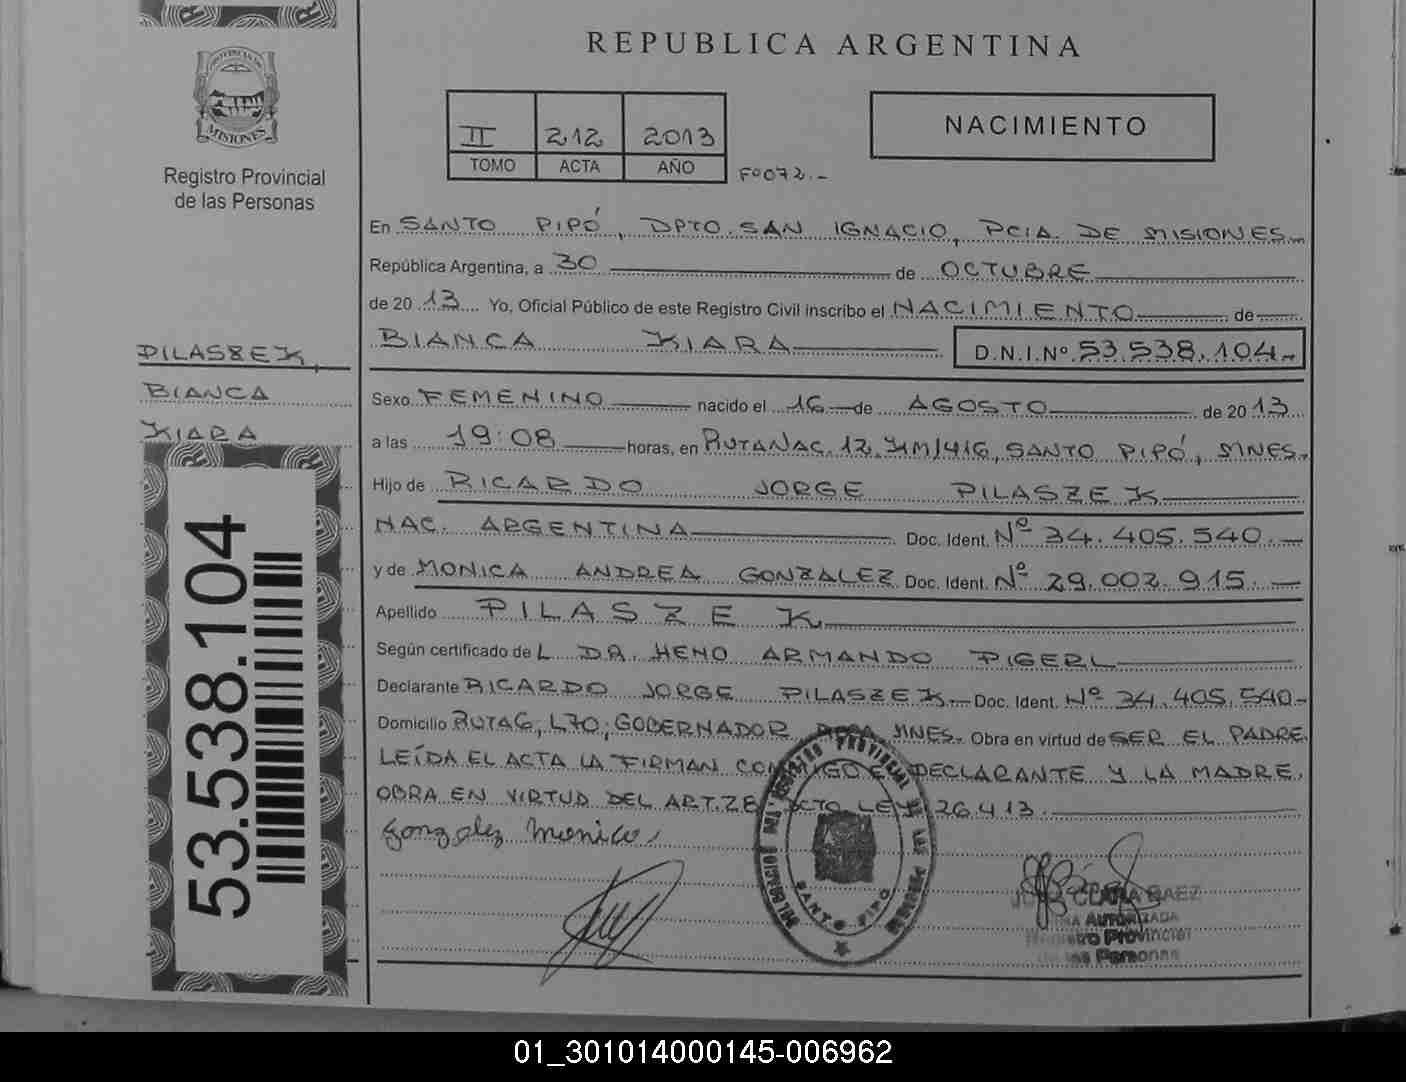 REPUBLICA ARGENTINA
PROVINCIA DE
MISIONES
Registro Provincial
de las Personas
II 212 2013
TOMO ACTA AÑO
Fº072.-
NACIMIENTO
En SANTO PIPÓ, DPTO. SAN IGNACIO, PCIA. DE MISIONES.
República Argentina, a 30 de OCTUBRE
de 20 13 Yo, Oficial Público de este Registro Civil inscribo el NACIMIENTO de
BIANCA KIARA D.N.I.Nº 53.538.104.-
PILASZEK,
BIANCA
KIARA
Sexo FEMENINO nacido el 16 de AGOSTO de 20 13
a las 19:08 horas, en RUTA NAC. 12, KM 1416, SANTO PIPÓ, MNES.
Hijo de RICARDO JORGE PILASZEK
NAC. ARGENTINA Doc. Ident. Nº 34.405.540.-
y de MONICA ANDREA GONZALEZ Doc. Ident. Nº 29.002.915.-
Apellido PILASZEK
Según certificado de L DR. HENO ARMANDO PIGERL
Declarante RICARDO JORGE PILASZEK.- Doc. Ident. Nº 34.405.540-
Domicilio RUTA 6, L70, GOBERNADOR ROCA, MNES. Obra en virtud de SER EL PADRE.
LEÍDA EL ACTA LA FIRMAN CONMIGO EL DECLARANTE Y LA MADRE.
OBRA EN VIRTUD DEL ART. 28 DCTO LEY 26.413.
Gonzalez Monica
53.538.104
DELEGACION DEL REGISTRO PROVINCIAL DE LAS PERSONAS
SANTO PIPO
CLARA BAEZ
FIRMA AUTORIZADA
Registro Provincial
de las Personas
01_301014000145-006962